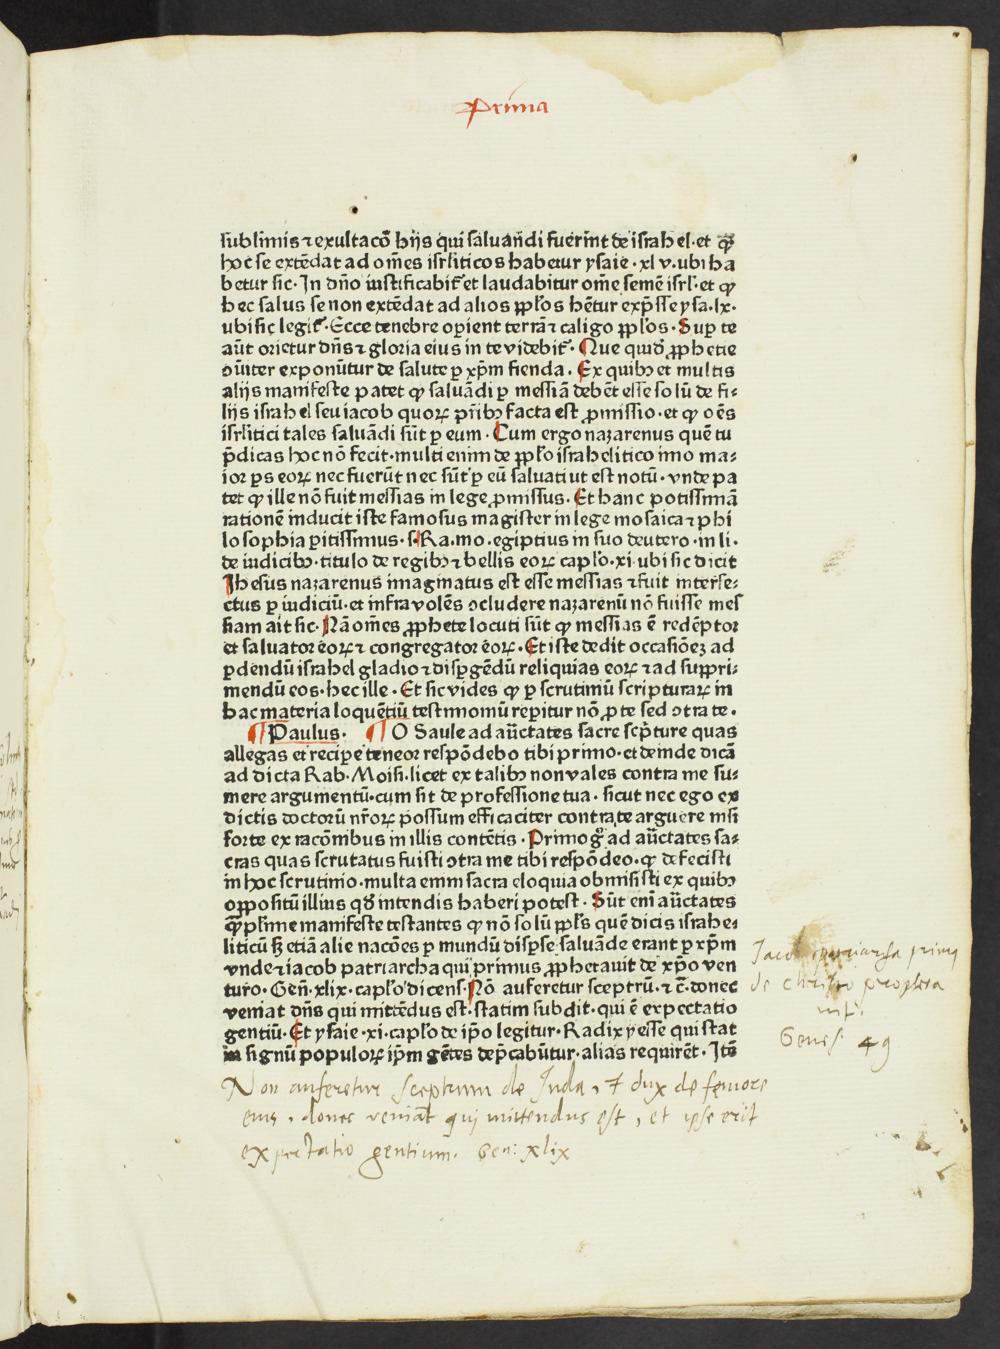 Prima
sublimis ⁊ exultacō hijs qui saluan̄di fuerīnt de israhel·et ꝙ
hoc se extēdat ad om̄es isrl̄iticos habetur ysaie·xlv·ubi ha
betur sic·In dn̄o iustificabit᷑ et laudabitur om̄e semē isrl̄·et ꝙ
hec salus se non extēdat ad alios ppl̄os hēt̄ur exp̄sse ysa·lx·
ubi sic legit᷑·Ecce tenebre oꝑient terrā ⁊ caligo ppl̄os·Suꝑ te
aūt orietur dn̄s ⁊ gloria eius in te videbit᷑·Que quid̄ ꝓphetie
ōīuiter exponūtur de salute ꝑ xp̄m fienda. Ex quibꝫ et multis
alijs manifeste patet ꝙ saluādi ꝑ messiā debēt esse solū de fi⹀
lijs israhel seu iacob quoꝝ pr̄ibꝫ facta est ꝓmissio·et ꝙ oēs
isrl̄itici tales saluādi sūt ꝑ eum·Cum ergo nazarenus quē tu
p̄dicas hoc nō fecit·multi enim de ppl̄o israhelitico imo ma⹀
ior ps eoꝝ nec fuerūt nec sūt ꝑ eū saluati ut est notū·vnde pa
tet ꝙ ille nō fuit messias in lege ꝓmissus·Et hanc potissimā
rationē inducit iste famosus magister in lege mosaica ⁊ phi
losophia ꝑitissimus·s·Ra.mo.egiptius in suo deutero·in li·
de iudicibꝫ·titulo de regibꝫ ⁊ bellis eoꝝ capl̄o·xi·ubi sic dicit
Ihesus nazarenus imaginatus est esse messias ⁊ fuit interfe⹀
ctus ꝑ iudiciū·et infra volēs ꝯcludere nazarenū nō fuisse mes
siam ait sic·Nā om̄es ꝓphete locuti sūt ꝙ messias ē redēptor
et saluator eoꝝ ⁊ congregator eoꝝ·Et iste dedit occasiōeꝫ ad
ꝑdendū israhel gladio ⁊ disꝑgēdū reliquias eoꝝ ⁊ ad suppri⹀
mendū eos·hec ille·Et sic vides ꝙ ꝑ scrutiniū scripturaꝝ in
hac materia loquētiū testimoniū reꝑitur nō ꝓ te sed ꝯtra te.
¶ Paulus. ¶ O Saule ad auc̄tates sacre scp̄ture quas
allegas et recipe teneor respōdebo tibi primo·et deinde dicā
ad dicta Rab·Moisi·licet ex talibꝫ non vales contra me su⹀
mere argumentū·cum sit de professione tua·sicut nec ego ex
dictis doctorū nr̄oꝝ possum efficaciter contra te arguere nisi
forte ex racōnibus in illis contētis·Primo gͦ ad auc̄tates sa⹀
cras quas scrutatus fuisti ꝯtra me tibi respōdeo·ꝙ defecisti
in hoc scrutinio·multa enim sacra eloquia obmisisti ex quibꝫ
oppositū illius qd̄ intendis haberi potest·Sūt enī auc̄tates
qͣmpl̄ime manifeste testantes ꝙ nō solū ppl̄s quē dicis israhe⹀
liticū sꝫ etiā alie nacōes ꝑ mundū disꝑse saluāde erant ꝑ xp̄m
vnde ⁊ iacob patriarcha qui primus ꝓphetauit de xp̄o ven
turo·Gen̄·xlix·capl̄o dicens·Nō auferetur sceptrū·⁊c̄·donec
veniat dn̄s qui mittēdus est·statim subdit·qui ē expectatio
gentiū·Et ysaie·xi·capl̄o de ip̄o legitur·Radix yesse qui stat
in signū populoꝝ ip̄m gētes dep̄cabūtur·alias requirēt·Itē
Jacob patriarcha primus
de christo propheta
uit.
Genes. 49
Non auferetur sceptrum de Juda, & dux de femore
eius, donec veniat qui mittendus est, et ipse erit
expectatio gentium. Gen: xlix